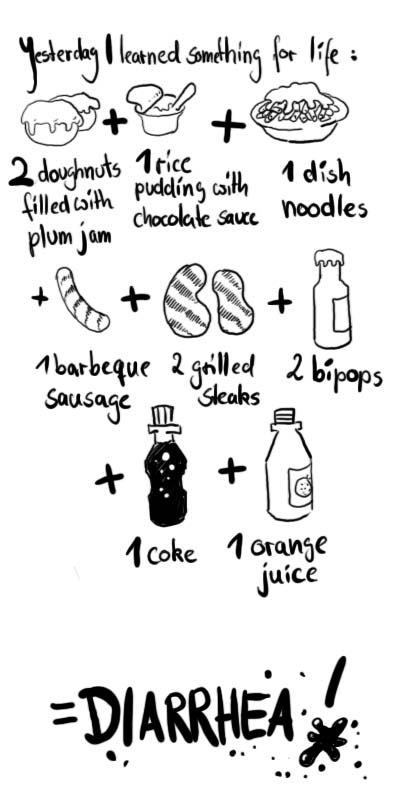 Yesterday I learned something for life :
+ +
2 doughnuts
filled with
plum jam
1 rice
pudding with
chocolate sauce
1 dish
noodles
+ + +
1 barbeque
sausage
2 grilled
steaks
2 bipops
+ +
1 coke
1 orange
juice
=DIARRHEA!